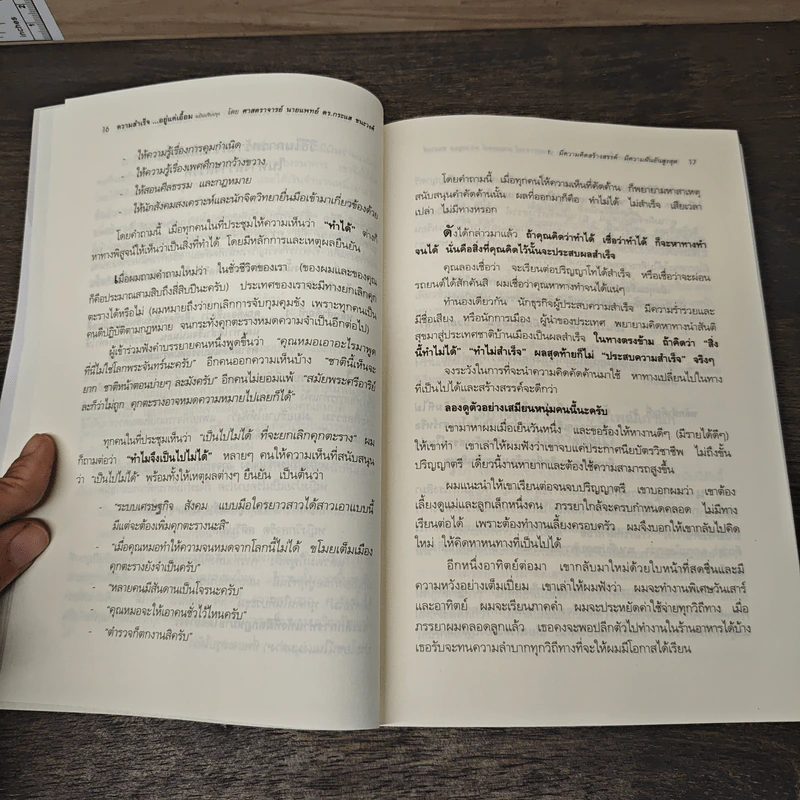 16 ความสำเร็จ ...อยู่แค่เอื้อม ฉบับปรับปรุง โดย ศาสตราจารย์ นายแพทย์ ดร.กระแส ชนะวงศ์
- ให้ความรู้เรื่องการคุมกำเนิด
- ให้ความรู้เรื่องเพศศึกษากว้างขวาง
- ให้สอนศีลธรรม และกฎหมาย
- ให้นักสังคมสงเคราะห์และนักจิตวิทยายื่นมือเข้ามาเกี่ยวข้องด้วย
โดยคำถามนี้ เมื่อทุกคนในที่ประชุมให้ความเห็นว่า "ทำได้" ต่าง
หาทางพิสูจน์ให้เห็นว่าเป็นสิ่งที่ทำได้ โดยมีหลักการและเหตุผลยืนยัน
เมื่อผมถามคำถามใหม่ว่า ในชั่วชีวิตของเรา (ของผมและของคุณ
ก็คือประมาณสามสิบถึงสี่สิบปีนะครับ) ประเทศของเราจะมีทางยกเลิกคุก
ตะรางได้หรือไม่ (ผมหมายถึงว่ายกเลิกการจับกุมคุมขัง เพราะทุกคนเป็น
คนดีปฏิบัติตามกฎหมาย จนกระทั่งคุกตะรางหมดความจำเป็นอีกต่อไป)
ผู้เข้าร่วมฟังคำบรรยายคนหนึ่งพูดขึ้นว่า "คุณหมอเอาอะไรมาพูด
ที่นี่ไม่ใช่โลกพระจันทร์นะครับ" อีกคนออกความเห็นบ้าง "ชาตินี้เห็นจะ
ยาก ชาติหน้าตอนบ่ายๆ ละมังครับ" อีกคนไม่ยอมแพ้ "สมัยพระศรีอาริย์
ละก็ว่าไม่ถูก คุกตะรางอาจหมดความหมายไปเลยก็ได้"
ทุกคนในที่ประชุมเห็นว่า "เป็นไปไม่ได้ ที่จะยกเลิกคุกตะราง" ผม
ก็ถามต่อว่า "ทำไมจึงเป็นไปไม่ได้" หลายๆ คนให้ความเห็นที่สนับสนุน
ว่า "เป็นไปไม่ได้" พร้อมทั้งให้เหตุผลต่างๆ ยืนยัน เป็นต้นว่า
- "ระบบเศรษฐกิจ สังคม แบบมือใครยาวสาวได้สาวเอาแบบนี้
มีแต่จะต้องเพิ่มคุกตะรางนะสิ"
- "เมื่อคุณหมอทำให้ความจนหมดจากโลกนี้ไม่ได้ ขโมยเต็มเมือง
คุกตะรางยังจำเป็นครับ"
- "หลายคนมีสันดานเป็นโจรนะครับ"
- "คุณหมอจะให้เอาคนชั่วไว้ไหนครับ"
- "ตำรวจก็ตกงานสิครับ"
1. มีความคิดสร้างสรรค์ มีความฝันอันสูงสุด 17
โดยคำถามนี้ เมื่อทุกคนให้ความเห็นที่คัดค้าน ก็พยายามหาสาเหตุ
สนับสนุนคำคัดค้านนั้น ผลที่ออกมาก็คือ ทำไม่ได้ ไม่สำเร็จ เสียเวลา
เปล่า ไม่มีทางหรอก
ดังได้กล่าวมาแล้ว ถ้าคุณคิดว่าทำได้ เชื่อว่าทำได้ ก็จะหาทางทำ
จนได้ นั่นคือสิ่งที่คุณคิดไว้นั้นจะประสบผลสำเร็จ
คุณลองเชื่อว่า จะเรียนต่อปริญญาโทได้สำเร็จ หรือเชื่อว่าจะผ่อน
รถยนต์ได้สักคันสิ ผมเชื่อว่าคุณหาทางทำจนได้แน่ๆ
ทำนองเดียวกัน นักธุรกิจผู้ประสบความสำเร็จ มีความร่ำรวยและ
มีชื่อเสียง หรือนักการเมือง ผู้นำของประเทศ พยายามคิดหาทางนำสันติ
สุขมาสู่ประเทศชาติบ้านเมืองเป็นผลสำเร็จ ในทางตรงข้าม ถ้าคิดว่า "สิ่ง
นี้ทำไม่ได้" "ทำไม่สำเร็จ" ผลสุดท้ายก็ไม่ "ประสบความสำเร็จ" จริงๆ
จงระวังในการที่จะนำความคิดคัดค้านมาใช้ หาทางเปลี่ยนไปในทาง
ที่เป็นไปได้และสร้างสรรค์จะดีกว่า
ลองดูตัวอย่างเสมียนหนุ่มคนนี้นะครับ
เขามาหาผมเมื่อเย็นวันหนึ่ง และขอร้องให้หางานดีๆ (มีรายได้ดีๆ)
ให้เขาทำ เขาเล่าให้ผมฟังว่าเขาจบแค่ประกาศนียบัตรวิชาชีพ ไม่ถึงขั้น
ปริญญาตรี เดี๋ยวนี้งานหายากและต้องใช้ความสามารถสูงขึ้น
ผมแนะนำให้เขาเรียนต่อจนจบปริญญาตรี เขาบอกผมว่า เขาต้อง
เลี้ยงดูแม่และลูกเล็กหนึ่งคน ภรรยาใกล้จะครบกำหนดคลอด ไม่มีทาง
เรียนต่อได้ เพราะต้องทำงานเลี้ยงครอบครัว ผมจึงบอกให้เขากลับไปคิด
ใหม่ ให้คิดหาหนทางที่เป็นไปได้
อีกหนึ่งอาทิตย์ต่อมา เขากลับมาใหม่ด้วยใบหน้าที่สดชื่นและมี
ความหวังอย่างเต็มเปี่ยม เขาเล่าให้ผมฟังว่า ผมจะทำงานพิเศษวันเสาร์
และอาทิตย์ ผมจะเรียนภาคค่ำ ผมจะประหยัดค่าใช้จ่ายทุกวิถีทาง เมื่อ
ภรรยาผมคลอดลูกแล้ว เธอคงจะพอปลีกตัวไปทำงานในร้านอาหารได้บ้าง
เธอรับจะทนความลำบากทุกวิถีทางที่จะให้ผมมีโอกาสได้เรียน